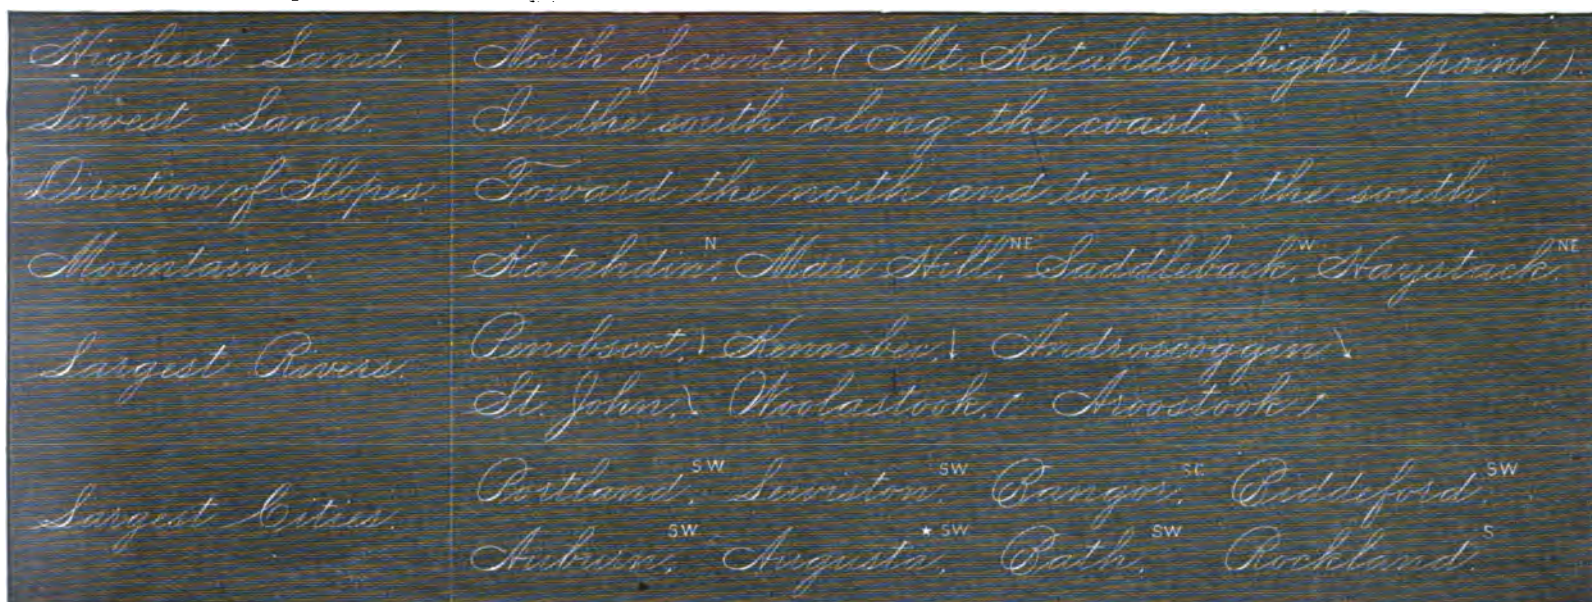 Highest Land. North of center. (Mt. Katahdin highest point).
Lowest Land. In the south along the coast.
Direction of Slopes. Toward the north and toward the south.
Mountains. Katahdin, N Mars Hill, NE Saddleback, W Haystack. NE
Largest Rivers. Penobscot, Kennebec, ↓ Androscoggin ↘
St. John, ↘ Woolastook, ↗ Aroostook ↗
Largest Cities. Portland, SW Lewiston, SW Bangor, Biddeford, SW
Auburn, SW Augusta, ★ SW Bath, SW Rockland. S